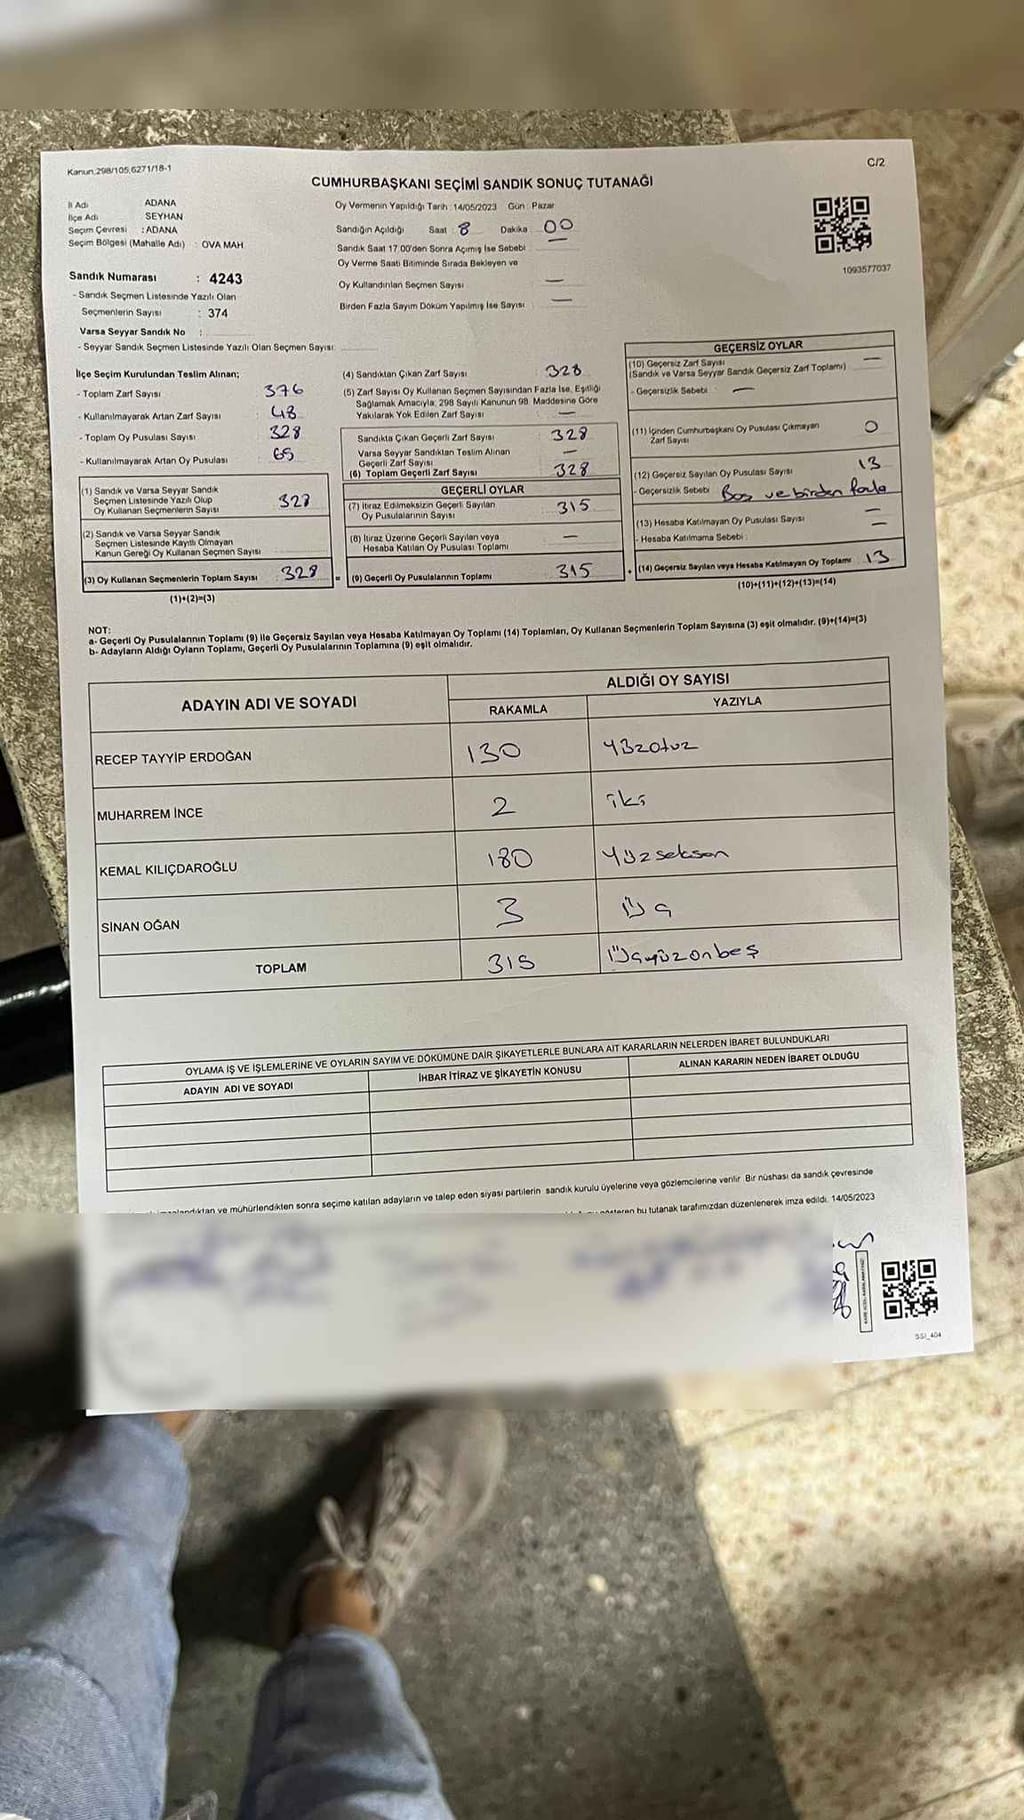 Kanun,298/105,6271/18-1
C/2
CUMHURBAŞKANI SEÇİMİ SANDIK SONUÇ TUTANAĞI
İl Adı ADANA
İlçe Adı SEYHAN
Seçim Çevresi : ADANA
Seçim Bölgesi (Mahalle Adı) : OVA MAH
Sandık Numarası : 4243
- Sandık Seçmen Listesinde Yazılı Olan
Seçmenlerin Sayısı : 374
Varsa Seyyar Sandık No :
- Seyyar Sandık Seçmen Listesinde Yazılı Olan Seçmen Sayısı:
Oy Vermenin Yapıldığı Tarih :14/05/2023 Gün : Pazar
Sandığın Açıldığı Saat 8 Dakika 00
Sandık Saat 17.00'den Sonra Açımış İse Sebebi
Oy Verme Saati Bitiminde Sırada Bekleyen ve
Oy Kullandırılan Seçmen Sayısı —
Birden Fazla Sayım Döküm Yapılmış İse Sayısı —
1093577037
İlçe Seçim Kurulundan Teslim Alınan;
- Toplam Zarf Sayısı 376
- Kullanılmayarak Artan Zarf Sayısı 48
- Toplam Oy Pusulası Sayısı 328
- Kullanılmayarak Artan Oy Pusulası 65
(1) Sandık ve Varsa Seyyar Sandık
Seçmen Listesinde Yazılı Olup
Oy Kullanan Seçmenlerin Sayısı 328
(2) Sandık ve Varsa Seyyar Sandık
Seçmen Listesinde Kayıtlı Olmayan
Kanun Gereği Oy Kullanan Seçmen Sayısı
(3) Oy Kullanan Seçmenlerin Toplam Sayısı 328
(1)+(2)=(3)
(4) Sandıktan Çıkan Zarf Sayısı 328
(5) Zarf Sayısı Oy Kullanan Seçmen Sayısından Fazla İse, Eşitliği
Sağlamak Amacıyla, 298 Sayılı Kanunun 98. Maddesine Göre
Yakılarak Yok Edilen Zarf Sayısı —
Sandıkta Çıkan Geçerli Zarf Sayısı 328
Varsa Seyyar Sandıktan Teslim Alınan
Geçerli Zarf Sayısı —
(6) Toplam Geçerli Zarf Sayısı 328
GEÇERLİ OYLAR
(7) İtiraz Edilmeksizin Geçerli Sayılan
Oy Pusulalarının Sayısı 315
(8) İtiraz Üzerine Geçerli Sayılan veya
Hesaba Katılan Oy Pusulası Toplamı —
= (9) Geçerli Oy Pusulalarının Toplamı 315
GEÇERSİZ OYLAR
(10) Geçersiz Zarf Sayısı —
(Sandık ve Varsa Seyyar Sandık Geçersiz Zarf Toplamı)
- Geçersizlik Sebebi : —
(11) İçinden Cumhurbaşkanı Oy Pusulası Çıkmayan
Zarf Sayısı 0
(12) Geçersiz Sayılan Oy Pusulası Sayısı 13
- Geçersizlik Sebebi Boş ve birden fazla
(13) Hesaba Katılmayan Oy Pusulası Sayısı —
- Hesaba Katılmama Sebebi : —
+ (14) Geçersiz Sayılan veya Hesaba Katılmayan Oy Toplamı 13
(10)+(11)+(12)+(13)=(14)
NOT:
a- Geçerli Oy Pusulalarının Toplamı (9) ile Geçersiz Sayılan veya Hesaba Katılmayan Oy Toplamı (14) Toplamları, Oy Kullanan Seçmenlerin Toplam Sayısına (3) eşit olmalıdır. (9)+(14)=(3)
b- Adayların Aldığı Oyların Toplamı, Geçerli Oy Pusulalarının Toplamına (9) eşit olmalıdır.
ADAYIN ADI VE SOYADI
ALDIĞI OY SAYISI
RAKAMLA YAZIYLA
RECEP TAYYİP ERDOĞAN 130 Yüzotuz
MUHARREM İNCE 2 iki
KEMAL KILIÇDAROĞLU 180 Yüzseksen
SİNAN OĞAN 3 Üç
TOPLAM 315 Üçyüzonbeş
OYLAMA İŞ VE İŞLEMLERİNE VE OYLARIN SAYIM VE DÖKÜMÜNE DAİR ŞİKAYETLERLE BUNLARA AİT KARARLARIN NELERDEN İBARET BULUNDUKLARI
ADAYIN ADI VE SOYADI İHBAR İTİRAZ VE ŞİKAYETİN KONUSU ALINAN KARARIN NEDEN İBARET OLDUĞU
ve mühürlendikten sonra seçime katılan adayların ve talep eden siyasi partilerin sandık kurulu üyelerine veya gözlemcilerine verilir. Bir nüshası da sandık çevresinde
bu tutanak tarafımızdan düzenlenerek imza edildi. 14/05/2023
SSI_404